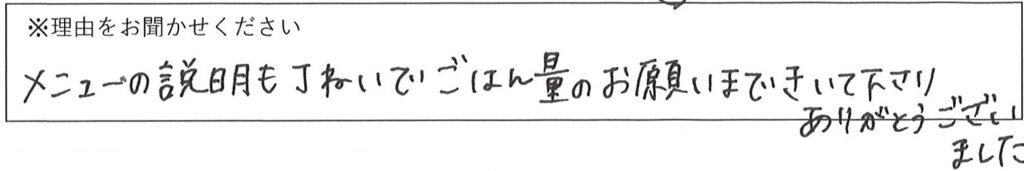 ※理由をお聞かせください
メニューの説明も丁ねいでごはん量のお願いまできいて下さり
ありがとうござい
ました